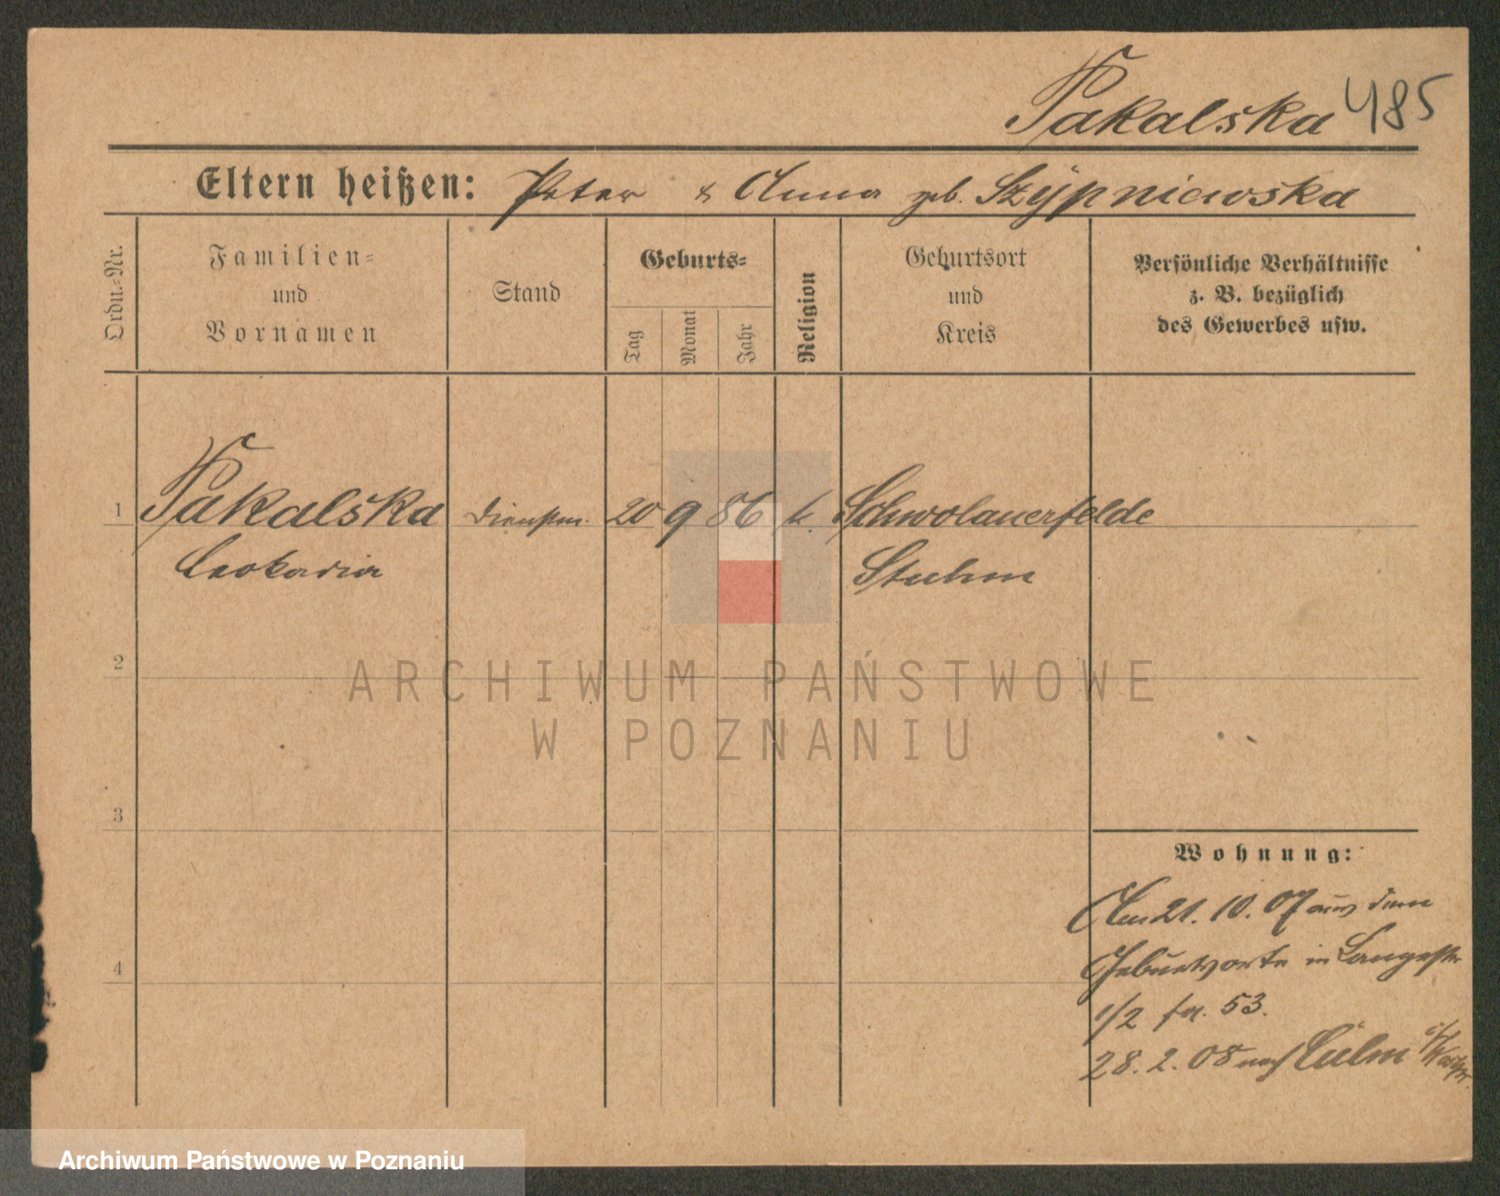 Pakalska 485
Eltern heißen: Peter & Anna geb. Szÿpniewska
Ordn.-Nr.
Familien-
und
Vornamen
Stand
Geburts-
Tag
Monat
Jahr
Religion
Geburtsort
und
Kreis
Persönliche Verhältnisse
z. B. bezüglich
des Gewerbes usw.
1 Pakalska Dienstm. 20 9 86 k. Schwolauerfelde
Leokadia Stuhm
2
3
4
Wohnung:
Am 21. 10. 07 aus dem
Geburtsorte in Langestr
1/2 fr. 53.
28. 2. 08 nach Culm
ARCHIWUM PAŃSTWOWE
W POZNANIU
Archiwum Państwowe w Poznaniu